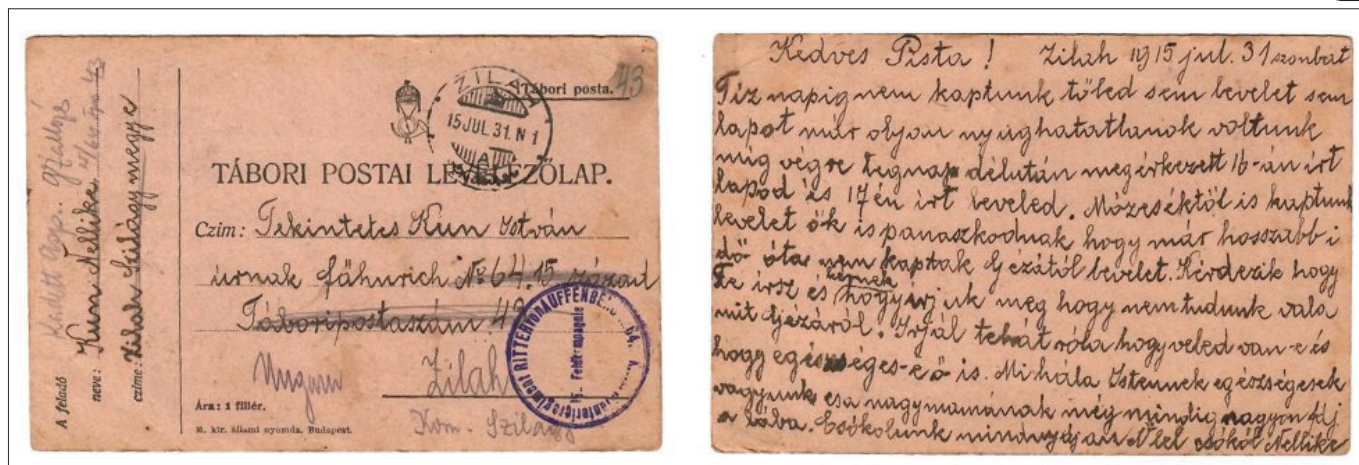 A feladó
neve: Kun Nellike
czíme: Zilah Szilágymegye
Kadett
Tábori posta. 43
ZILAH
15 JUL. 31. N 1
TÁBORI POSTAI LEVELEZŐLAP.
Czim: Tekintetes Kun István
úrnak fähnrich № 64. 15 század
Táboripostaszám 43
Ungarn Zilah
Kom. Szilágy
Ára: 1 fillér.
M. kir. állami nyomda. Budapest.
RITTER von AUFFENBE 64.
15. Feldkompagnie
Kedves Pista! Zilah 1915 jul. 31 szonbat
Tíz napig nem kaptunk tőled sem levelet sem
lapot már olyan nyughatatlanok voltunk
míg végre tegnap délután megérkezett 16-án írt
lapod és 17én írt leveled. Mózeséktől is kaptunk
levelet ők is panaszkodnak hogy már hosszabb i
dő óta nem kaptak Gézától levelet. Kérdezik hogy
Te írsz és kérnek hogy írjuk meg hogy nem tudunk vala
mit Gézáról. Irjál tehát róla hogy veled van-e és
hogy egészséges-e ő is. Mi hála Istennek egészségesek
vagyunk csa nagymamának még mindig nagyon fáj
a lába. Csókolunk mindnyájan csókol Nellike